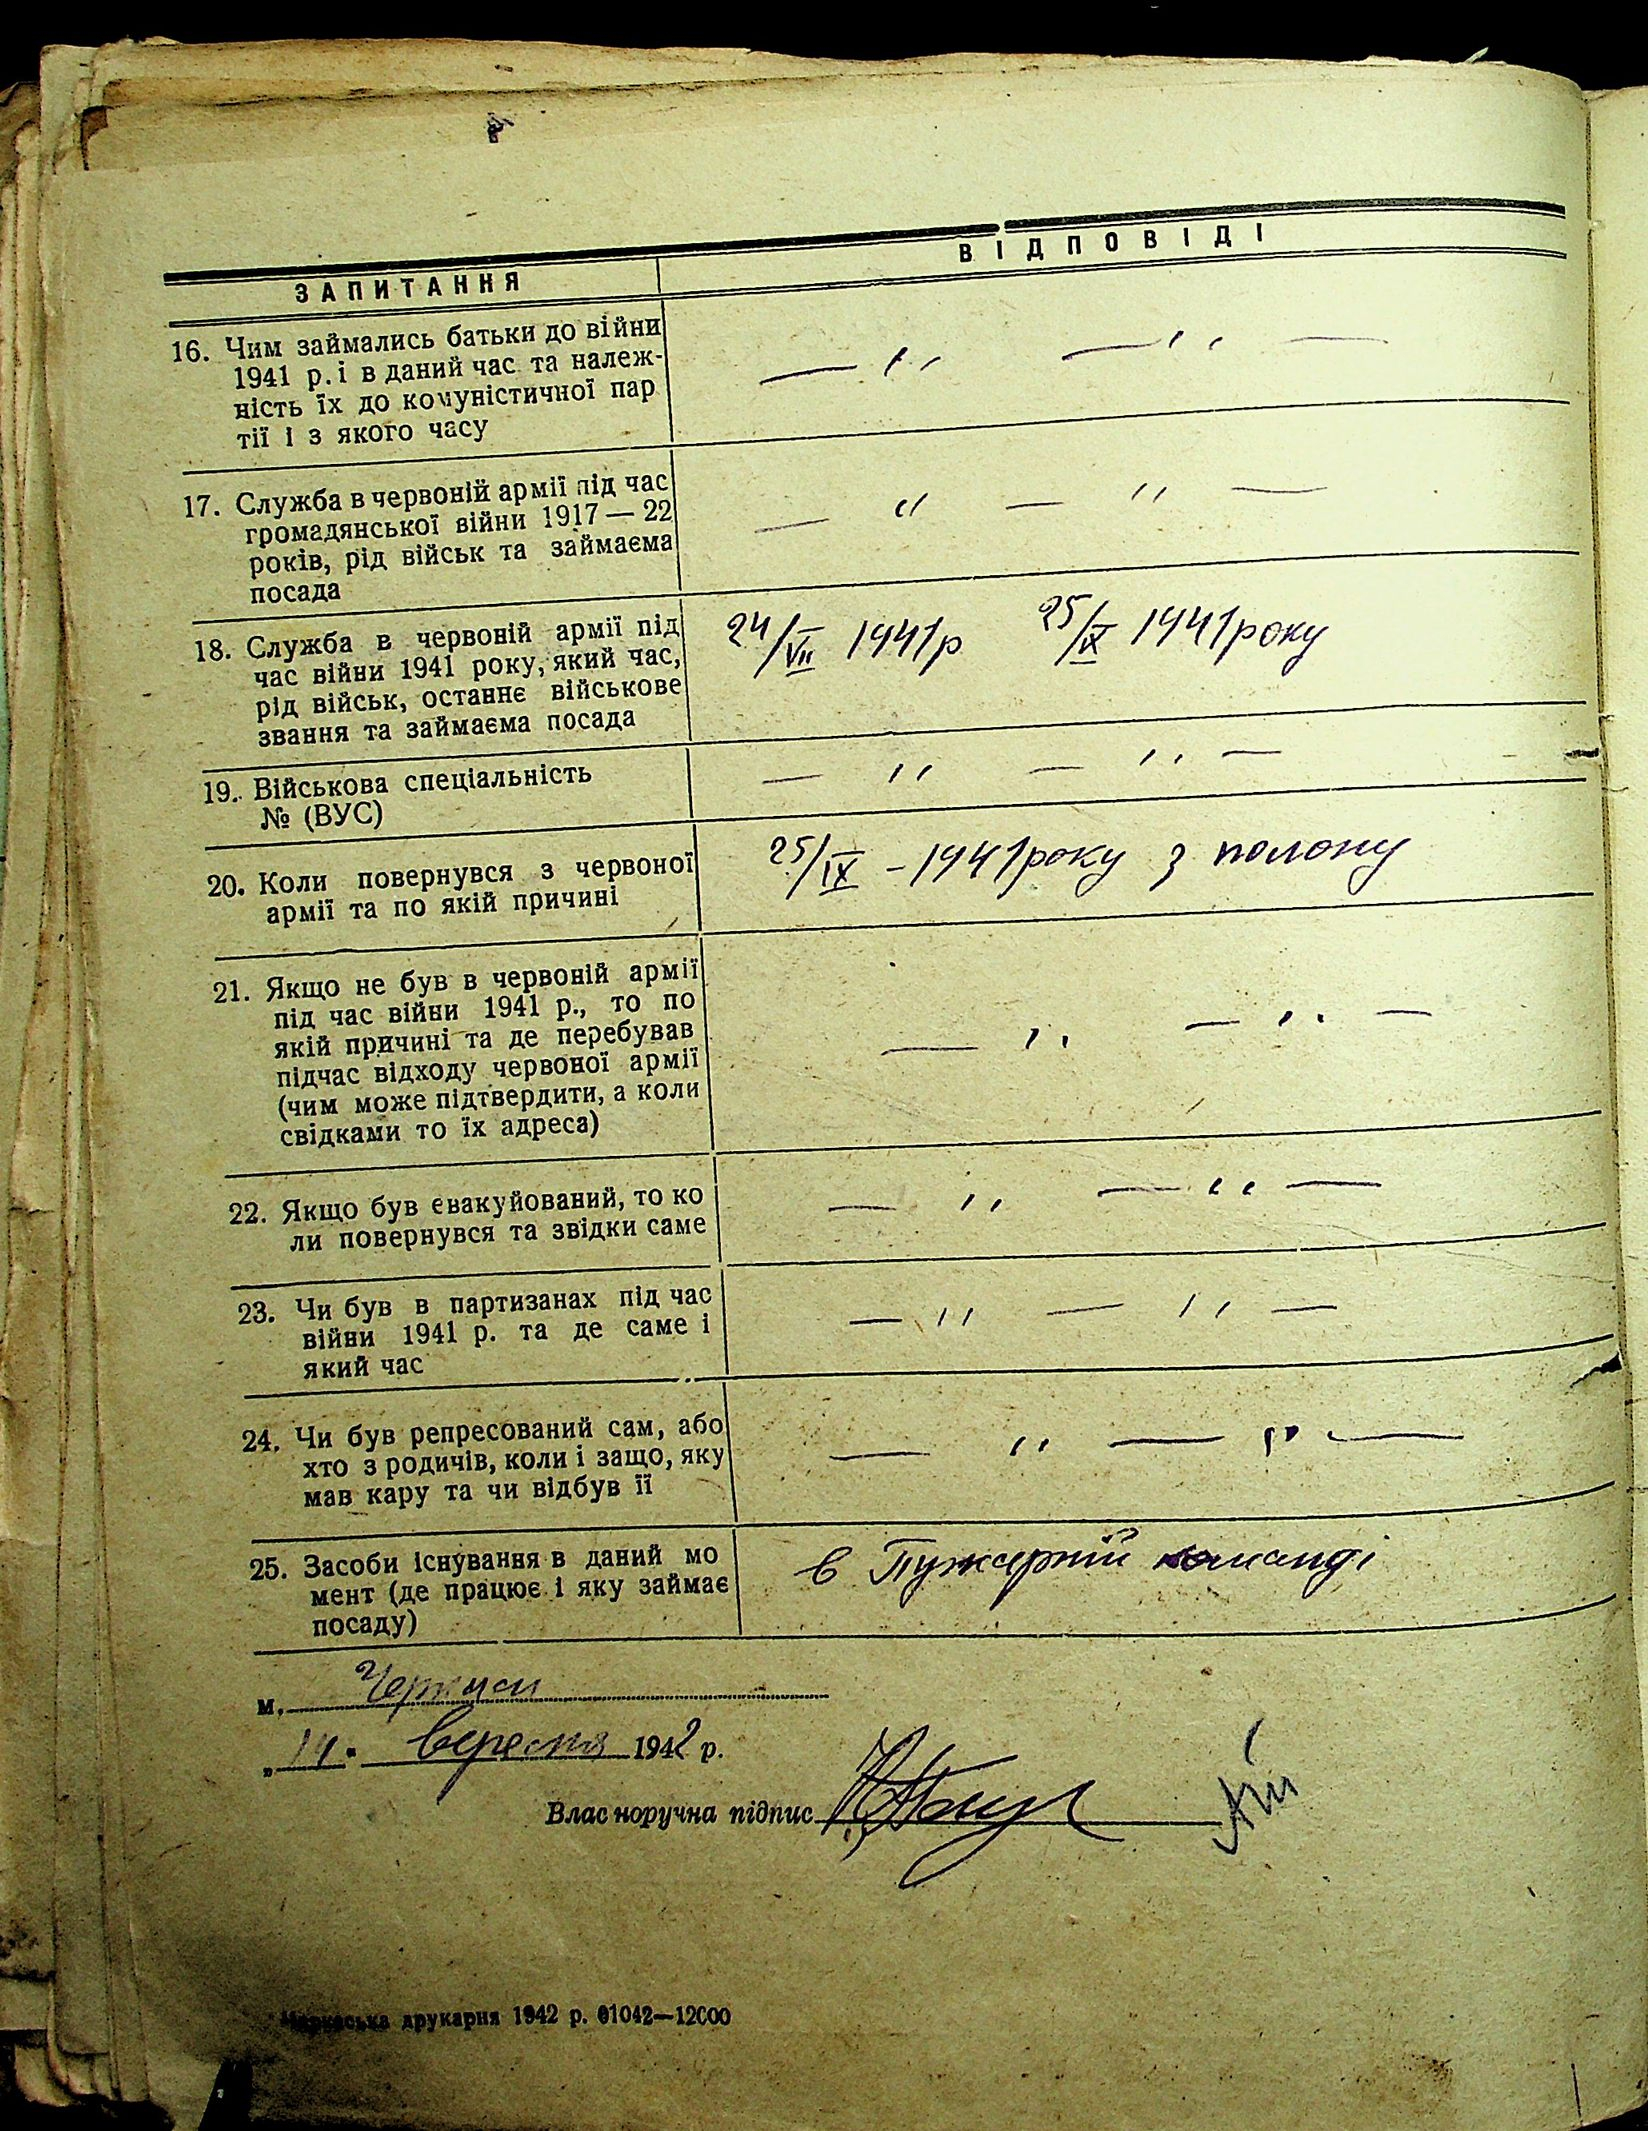 ЗАПИТАННЯ
ВІДПОВІДІ
16. Чим займались батьки до війни
1941 р. і в даний час та належ-
ність їх до комуністичної пар
тії і з якого часу
— ,, — ,, —
17. Служба в червоній армії під час
громадянської війни 1917 — 22
років, рід військ та займаєма
посада
— ,, — ,, —
18. Служба в червоній армії під
час війни 1941 року, який час,
рід військ, останнє військове
звання та займаєма посада
24/VII 1941р 25/IX 1941року
19. Військова спеціальність
№ (ВУС)
— ,, — ,, —
20. Коли повернувся з червоної
армії та по якій причині
25/IX – 1941року з полону
21. Якщо не був в червоній армії
під час війни 1941 р., то по
якій причині та де перебував
підчас відходу червоної армії
(чим може підтвердити, а коли
свідками то їх адреса)
— ,, — ,, —
22. Якщо був евакуйований, то ко
ли повернувся та звідки саме
— ,, — ,, —
23. Чи був в партизанах під час
війни 1941 р. та де саме і
який час
— ,, — ,, —
24. Чи був репресований сам, або
хто з родичів, коли і защо, яку
мав кару та чи відбув її
— ,, — ,, —
25. Засоби існування в даний мо
мент (де працює і яку займає
посаду)
в Пужарній команді
м. Черкаси
„14. вересня 1942 р.
Власноручна підпис
Черкаська друкарня 1942 р. 01042—12000